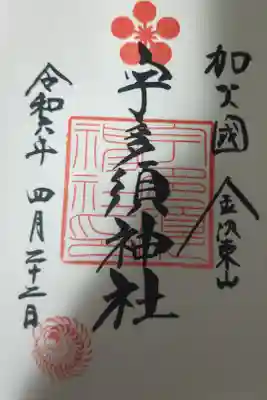 加久國 金沢東山
宇多須神社
令和六年 四月二十二日
宇多須神社印